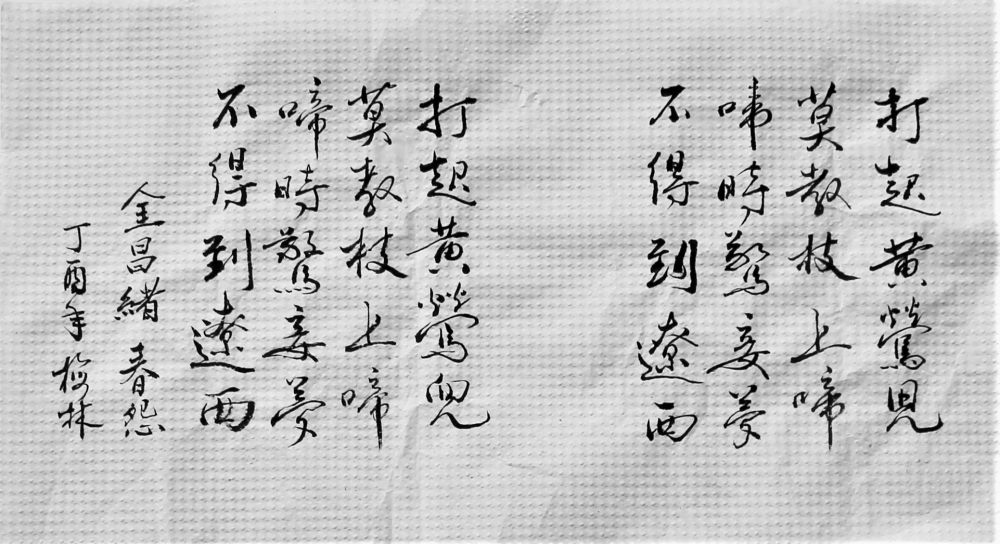 打起黄鶯兒
莫教枝上啼
啼時驚妾夢
不得到遼西
打起黄鶯兒
莫教枝上啼
啼時驚妾夢
不得到遼西
金昌緒 春怨
丁酉年 梅林